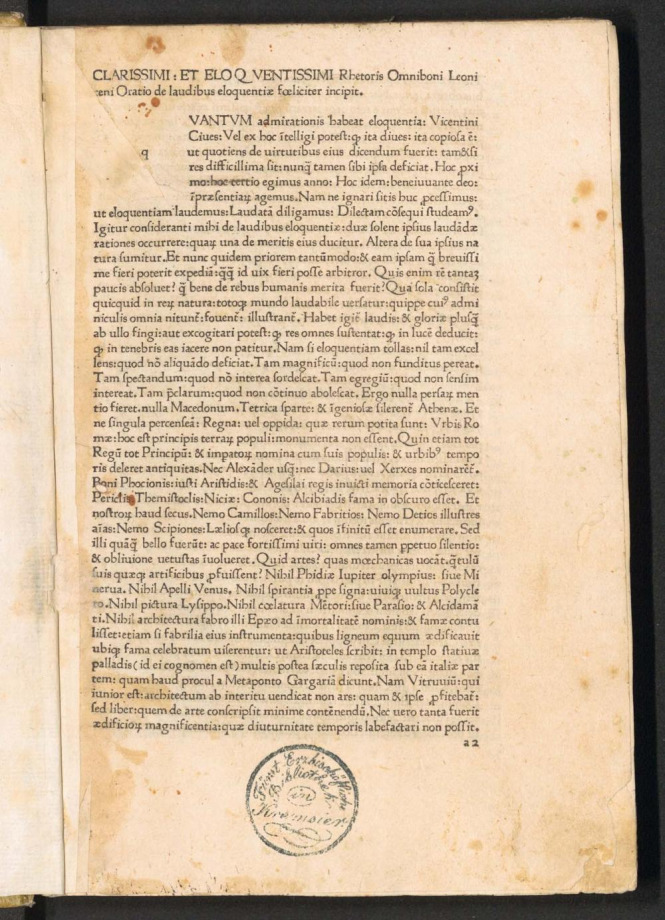 CLARISSIMI: ET ELOQVENTISSIMI Rhetoris Omniboni Leoni
ceni Oratio de laudibus eloquentiæ fœliciter incipit.
VANTVM admirationis habeat eloquentia: Vicentini
Ciues: Vel ex hoc ītelligi potest: ꝙ ita diues: ita copiosa ē:
q
ut quotiens de uirtutibus eius dicendum fuerit: tamẽsi
res difficillima sit: nunq̃ tamen sibi ipsa deficiat. Hoc ꝓxi
mo: hoc tertio egimus anno: Hoc idem: beneiuuante deo:
īpræsentiaꝝ agemus. Nam ne ignari sitis huc ꝓcessimus:
ut eloquentiam laudemus: Laudatā diligamus: Dilectam cōsequi studeamꝰ.
Igitur consideranti mihi de laudibus eloquentiæ: duæ solent ipsius laudādæ
rationes occurrere: quaꝝ una de meritis eius ducitur. Altera de sua ipsius na
tura sumitur. Et nunc quidem priorem tantūmodo: & eam ipsam q̃ breuissi
me fieri poterit expediā: q̃q̃ id uix fieri posse arbitror. Quis enim rē tantaꝫ
paucis absoluet? q̃ bene de rebus humanis merita fuerit? Qua sola consistit
quicquid in reꝝ natura: totoqꝫ mundo laudabile uersatur: quippe cuiꝰ admi
niculis omnia nitunt̃: fouent̃: illustrant̃. Habet igit̃ laudis: & gloriæ plusq̃
ab ullo fingi: aut excogitari potest: ꝙ res omnes sustentat: ꝙ in lucē deducit:
ꝙ in tenebris eas iacere non patitur. Nam si eloquentiam tollas: nil tam excel
lens: quod nō aliquādo deficiat. Tam magnificū: quod non funditus pereat.
Tam spectandum: quod nō interea sordescat. Tam egregiū: quod non sensim
intereat. Tam p̄clarum: quod non cōtinuo abolescat. Ergo nulla persaꝝ men
tio fieret. nulla Macedonum. Tetrica sparte: & īgeniosæ silerent̃ Athenæ. Et
ne singula percenseā: Regna: uel oppida: quæ rerum potita sunt: Vrbis Ro
mæ: hoc est principis terraꝝ populi: monumenta non essent. Quin etiam tot
Regū tot Principū: & impatoꝝ nomina cum suis populis: & urbibꝰ tempo
ris deleret antiquitas. Nec Alexāder usq̃: nec Darius: uel Xerxes nominaret̃.
Boni Phocionis: iusti Aristidis: & Agesilai regis inuicti memoria cōticesceret:
Periclis Themistoclis: Niciæ: Cononis: Alcibiadis fama in obscuro esset. Et
nostroꝝ haud secus. Nemo Camillos: Nemo Fabritios: Nemo Detios illustres
aīas: Nemo Scipiones: Læliosqꝫ nosceret: & quos īfinitū esset enumerare. Sed
illi quāq̃ bello fuerūt: ac pace fortissimi uiri: omnes tamen ꝑpetuo silentio:
& obliuione uetustas īuolueret. Quid artes? quas mœchanicas uocāt. q̃tulū
suis quæqꝫ artificibus ꝓfuissent? Nihil Phidiæ Iupiter olympius: siue Mi
nerua. Nihil Apelli Venus. Nihil spirantia ꝓpe signa: uiuiqꝫ uultus Polycle
to. Nihil pictura Lysippo. Nihil cœlatura Mētori: siue Parasio: & Alcidamā
ti. Nihil architectura fabro illi Epæo ad īmortalitatē nominis: & famæ contu
lisset: etiam si fabrilia eius instrumenta: quibus ligneum equum ædificauit
ubiqꝫ fama celebratum uiserentur: ut Aristoteles scribit: in templo statiuæ
palladis (id ei cognomen est) multis postea sæculis reposita sub eā italiæ par
tem: quam haud procul a Metaponto Gargariā dicunt. Nam Vitruuiū: qui
iunior est: architectum ab interitu uendicat non ars: quam & ipse ꝓfitebat̃:
sed liber: quem de arte conscripsit minime contēnendū. Nec uero tanta fuerit
ædificioꝝ magnificentia: quæ diuturnitate temporis labefactari non possit.
a2
Fürst Erzbischöfliche
Bibliothek
in
Kremsier